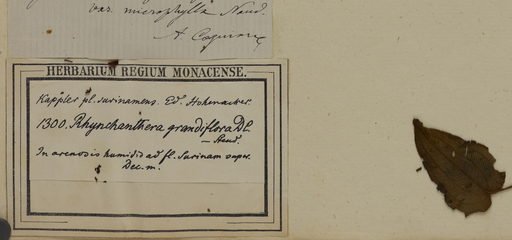 var. microphylla Naud.
A. Cogniaux
HERBARIUM REGIUM MONACENSE.
Kappler pl. surinamens. Ed. Hohenacker.
1300. Rhynchanthera grandiflora DC.
— Steud.
In arenosis humidis ad fl. Surinam super.
Dec. m.